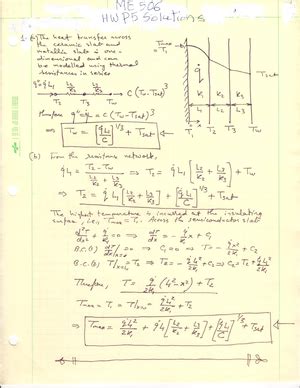 ME 506
HW P5 Solutions
1. (a) The heat transfer across
the ceramic slab and
metallic slabs is one-
dimensional and can
be modelled using thermal
resistances in series
q" = q̇L₁ C (Tw - Tsat)³
T₂ L₂/K₂ T₃ L₃/K₃ Tw
Therefore q" = q̇L₁ = C (Tw - Tsat)³
⇒ Tw = [q̇L₁/C]^1/3 + Tsat
Tmax = T₁
q̇
Tsat
K₁ K₂ K₃
L₁ L₂ L₃
T₁ T₂ T₃ Tw
(b) From the resistance network,
q̇L₁ = (T₂ - Tw)/(L₂/K₂ + L₃/K₃) ⇒ T₂ = q̇L₁ [L₂/K₂ + L₃/K₃] + Tw
⇒ T₂ = q̇L₁ [L₂/K₂ + L₃/K₃] + [q̇L₁/C]^1/3 + Tsat
The highest temperature is involved at the insulating
surface, i.e., Tmax = T₁. Across the semiconductor slab
d²T/dx² + q̇/K₁ = 0 ⇒ dT/dx = -q̇/K₁ x + C₁
B.C.(1) dT/dx|x=0 = 0 ⇒ C₁ = 0 ⇒ T = -q̇x²/2K₁ + C₂
B.C.(2) T|x=L₁ = T₂ ⇒ T₂ = -q̇L₁²/2K₁ + C₂ ⇒ C₂ = T₂ + q̇L₁²/2K₁
Therefore, T = q̇/2K₁ (L₁² - x²) + T₂
Tmax = T₁ = T|x=0 = q̇L₁²/2K₁ + T₂
⇒ Tmax = q̇L₁²/2K₁ + q̇L₁ [L₂/K₂ + L₃/K₃] + [q̇L₁/C]^1/3 + Tsat